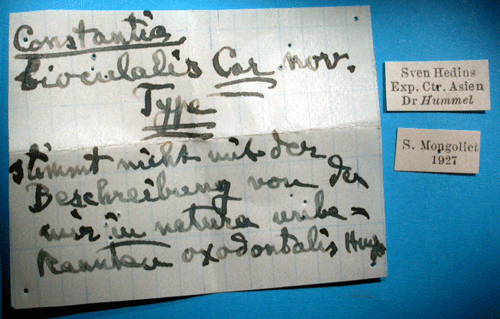 Constantia
biocularis Car nov.
Type
stimmt nicht mit der
Beschreibung von der
mir in natura unbe-
kannten oxodontalis Hmps
Sven Hedins
Exp. Ctr. Asien
Dr Hummel
S. Mongoliet
1927